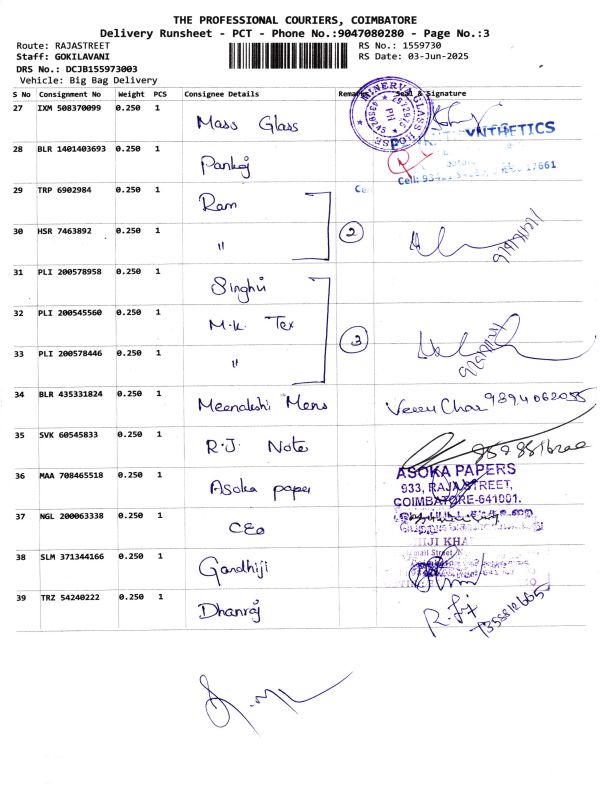 THE PROFESSIONAL COURIERS, COIMBATORE
Delivery Runsheet - PCT - Phone No.:9047080280 - Page No.:3
Route: RAJASTREET
RS No.: 1559730
Staff: GOKILAVANI
RS Date: 03-Jun-2025
DRS No.: DCJB155973003
Vehicle: Big Bag Delivery
S No Consignment No Weight PCS Consignee Details Remarks Seal & Signature
27 IXM 508370099 0.250 1 Mass Glass
MINERVA GLASS HOUSE
VNTHETICS
28 BLR 1401403693 0.250 1 Pankaj
17661
29 TRP 6902984 0.250 1 Ram
30 HSR 7463892 0.250 1 " 2
31 PLI 200578958 0.250 1 Singhvi
32 PLI 200545560 0.250 1 M.K. Tex
3
33 PLI 200578446 0.250 1 "
34 BLR 435331824 0.250 1 Meenakshi Mens 9894062055
35 SVK 60545833 0.250 1 R.J. Note
36 MAA 708465518 0.250 1 Asoka paper
ASOKA PAPERS
933, RAJA STREET,
COIMBATORE-641001.
37 NGL 200063338 0.250 1 CEO
38 SLM 371344166 0.250 1 Gandhiji
39 TRZ 54240222 0.250 1 Dhanraj